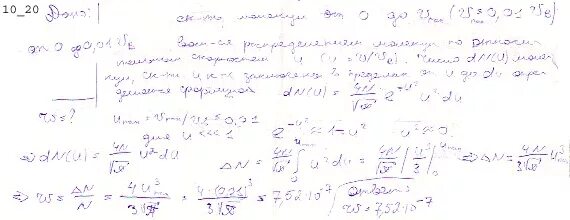 10_20 Дано: ск-ть молекул от 0 до υmax (υmax = 0,01 υв)
от 0 до 0,01 υв распределением молекул по относи-
тельным скоростям u (u = υ/υв). Число dN(u) молекул,
ск-ти u заключены в пределах от u до du опре-
деляется формулой dN(u) = 4N/√π e^-u² u² du
w = ? umax = υmax/υв = 0,01
для u <<< 1 e^-u² ≈ 1-u² u² ≈ 0
=> dN(u) = 4N/√π u² du ΔN = 4N/√π ∫ u² du = 4N/√π | u³/3 | => ΔN = 4N/√π u³/3
=> w = ΔN/N = 4 u³max/3√π = 4·(0,01)³/3√π = 7,52·10^-7 ответ: w = 7,52·10^-7